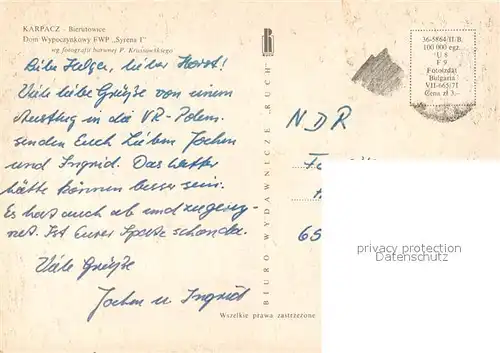 KARPACZ - Bierutowice
Dom Wypoczynkowy FWP „Syrena I”
wg fotografii barwnej P. Krassowskiego
Liebe Helga, lieber Horst!
Viele liebe Grüße von einem
Ausflug in die VR-Polen
senden Euch Lieben Jochen
und Ingrid. Das Wetter
hätte können besser sein.
Es hat auch ab und zu gereg-
net. Ist Eurer schon da.
Viele Grüße
Jochen u Ingrid
BIURO WYDAWNICZE „RUCH”
R
36-5864/II/B
100 000 egz.
U s
F 9
Fotoizdat
Bulgaria
VII-665/71
Cena zł 3,—
NDR
65
privacy protection
Datenschutz
Wszelkie prawa zastrzeżone